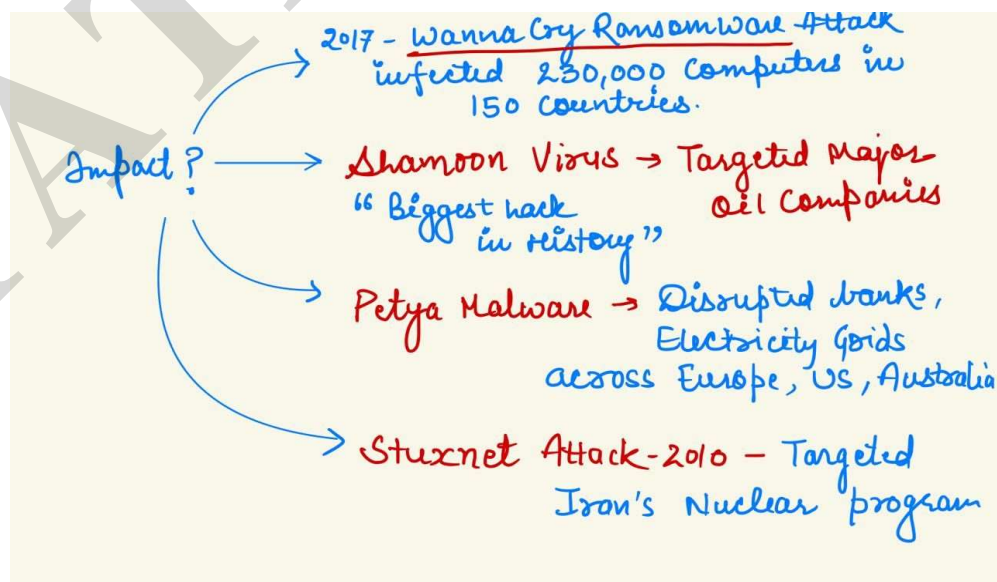 2017 - Wanna Cry Ransomware Attack
infected 230,000 Computers in
150 Countries.
Impact?
Shamoon Virus → Targeted Major
Oil Companies
"Biggest hack
in History"
Petya Malware → Disrupted banks,
Electricity Grids
across Europe, US, Australia
Stuxnet Attack-2010 - Targeted
Iran's Nuclear program